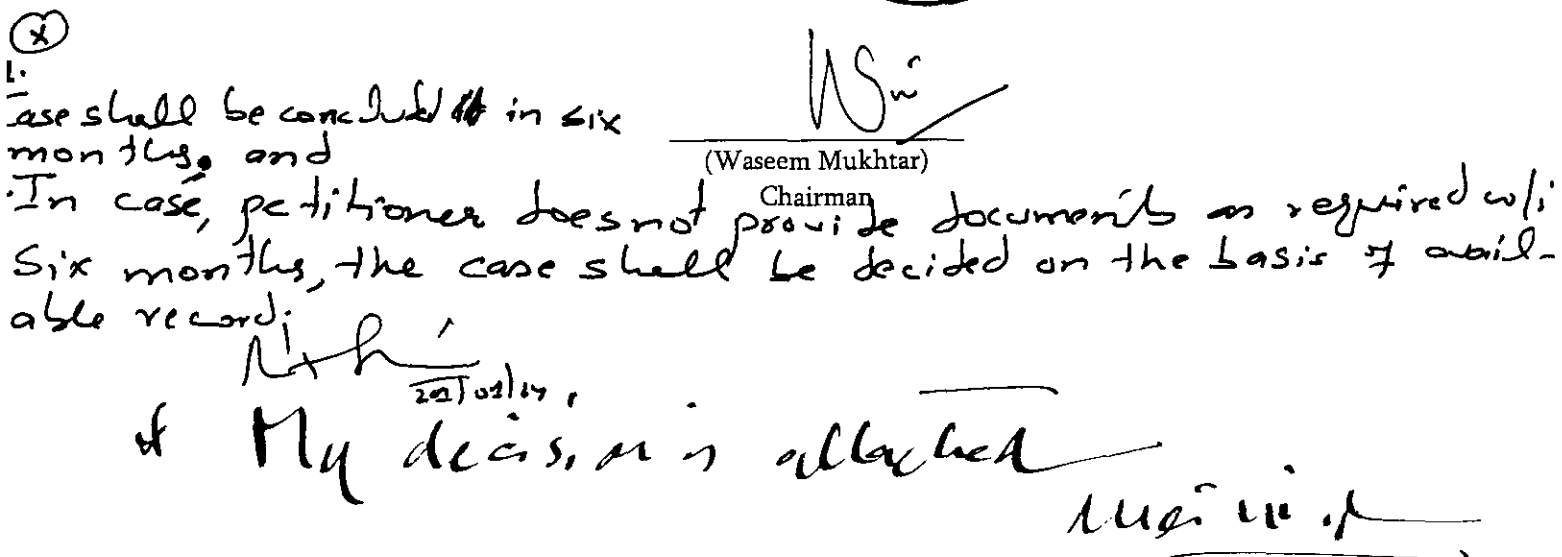 x
1.
ase shall be concluded in six
months. and
(Waseem Mukhtar)
Chairman
In case, petitioner does not provide documents as required w/i
Six months, the case shall be decided on the basis of avail-
able record.
* My decision is attached